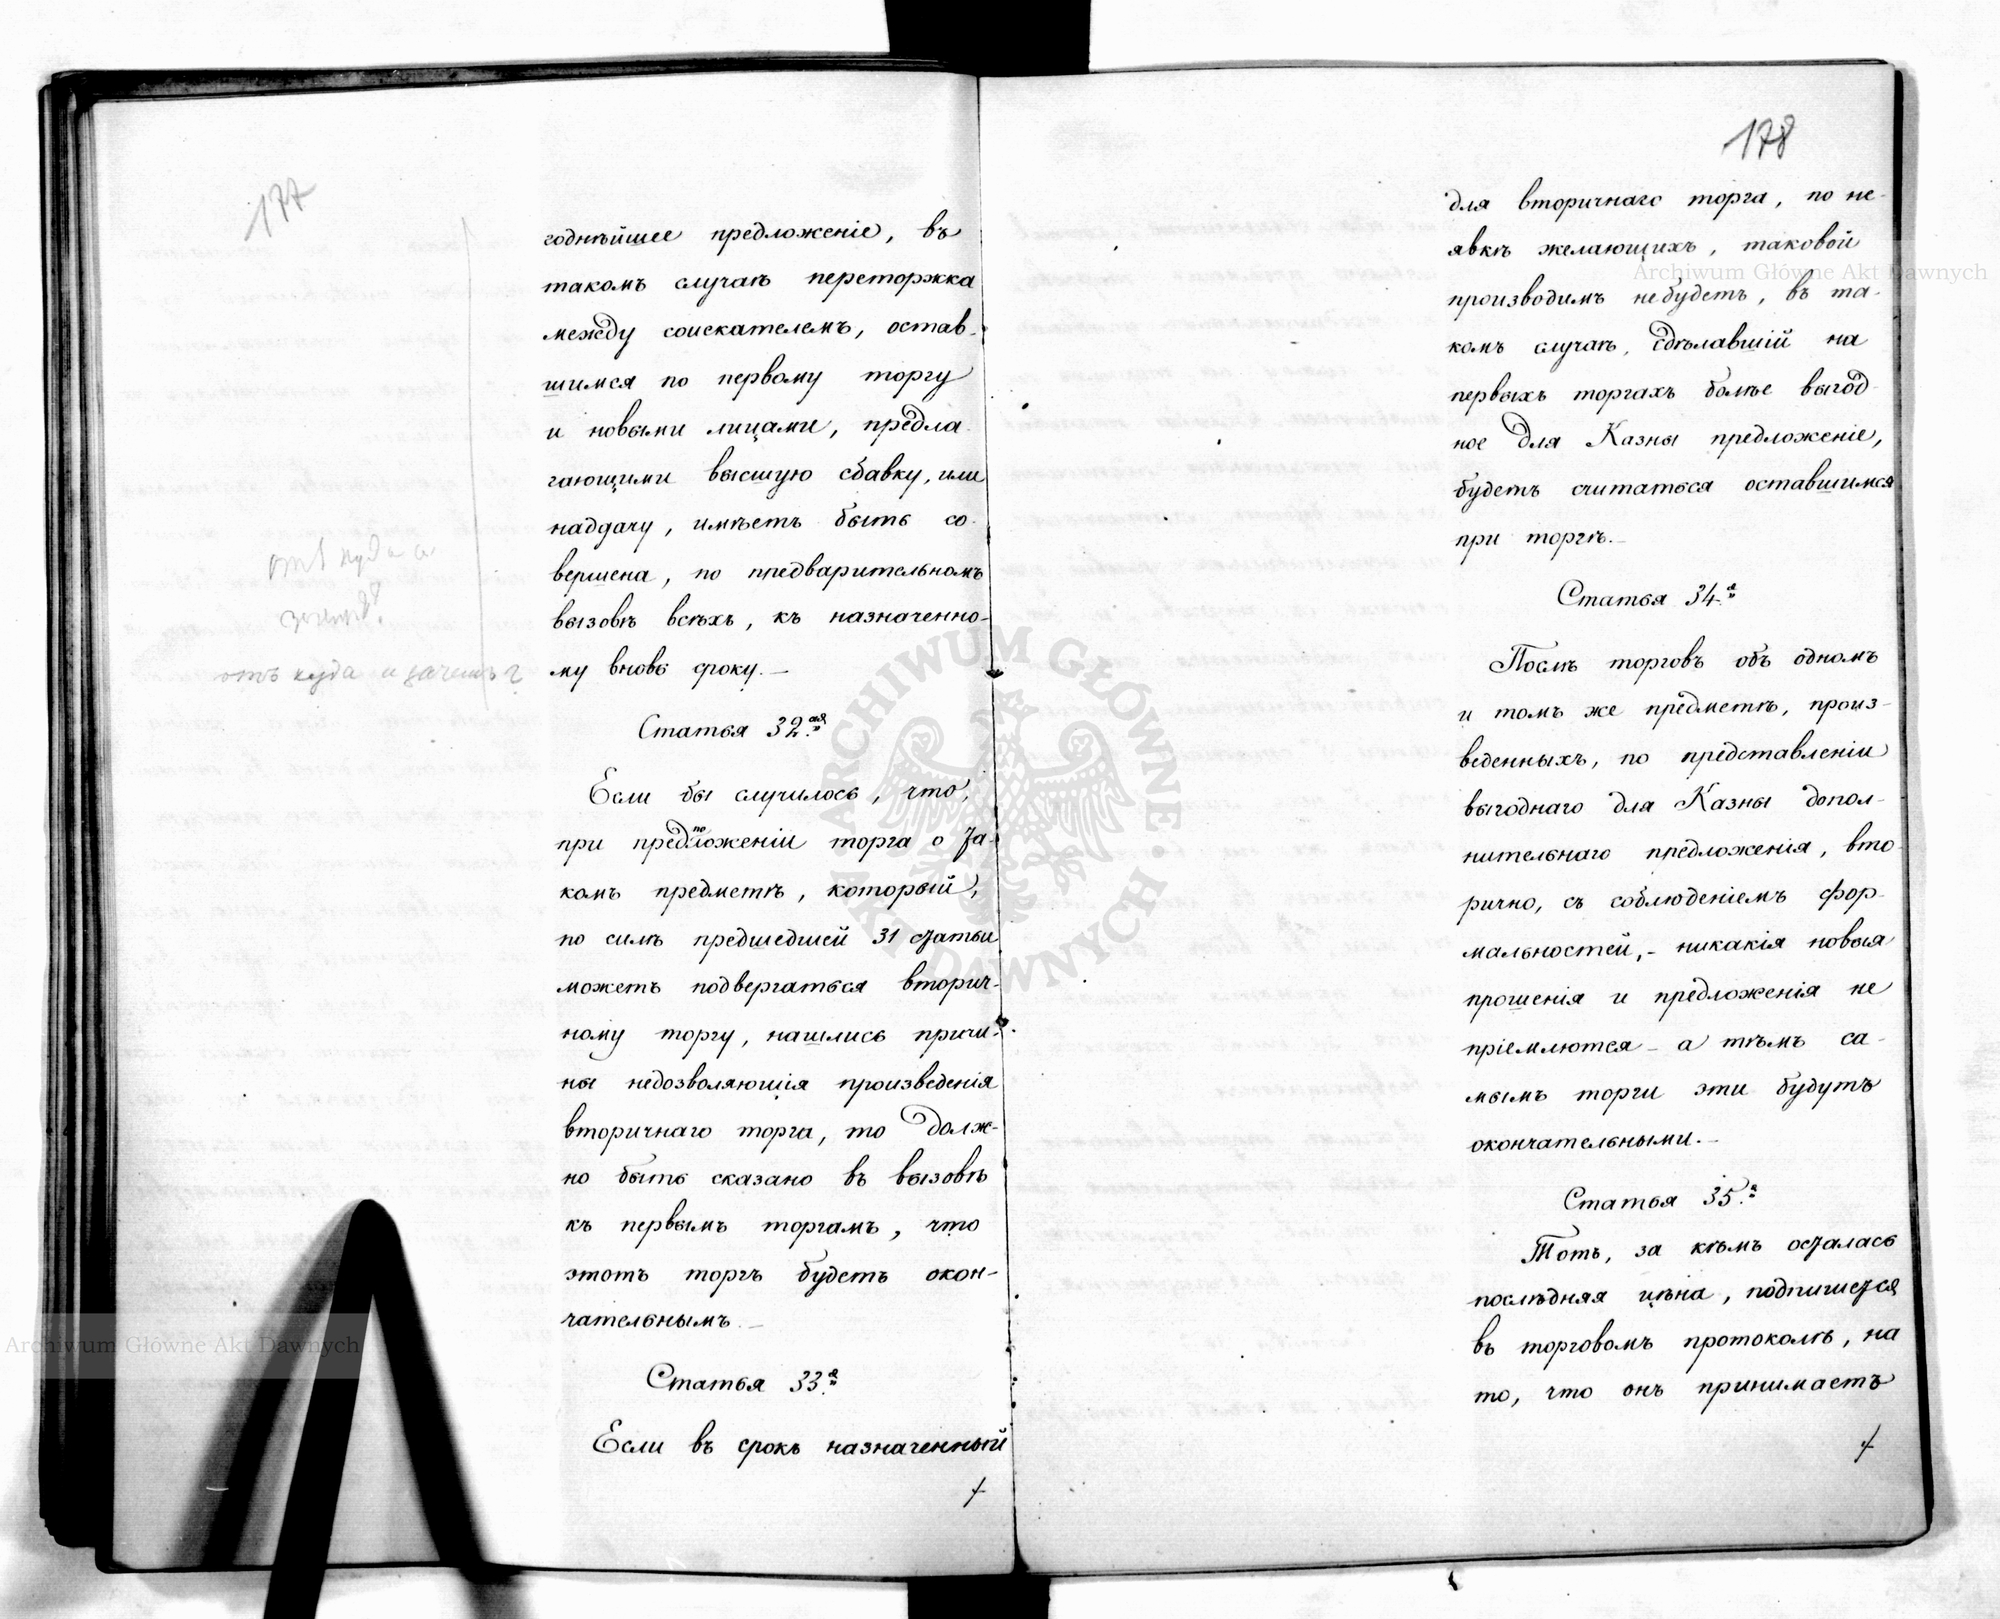 177
годнѣйшее предложеніе, въ
такомъ случаѣ переторжка
между соискателемъ, остав-
шимся по первому торгу
и новыми лицами, предла-
гающими высшую сбавку, или
наддачу, имѣетъ быть со-
вершена, по предварительномъ
вызовѣ всѣхъ, къ назначенно-
му вновь сроку. —
отъ куда и
отъ куда и зачемъ?
Статья 32.ая
Если бы случилось, что,
при предположеніи торга о та-
комъ предметѣ, который,
по силѣ предшедшей 31 статьи
можетъ подвергаться вторич-
ному торгу, нашлись причи-
ны недозволяющія произведенія
вторичнаго торга, то долж-
но быть сказано въ вызовѣ
къ первымъ торгамъ, что
этотъ торгъ будетъ окон-
чательнымъ. —
Статья 33.я
Если въ срокъ назначенный
178
для вторичнаго торга, по не-
явкѣ желающихъ, таковой
производимъ небудетъ, въ та-
комъ случаѣ, сдѣлавшій на
первыхъ торгахъ болѣе выгод-
ное для Казны предложеніе,
будетъ считаться оставшимся
при торгѣ. —
Статья 34.я
Послѣ торговъ объ одномъ
и томъ же предметѣ, произ-
веденныхъ, по представленіи
выгоднаго для Казны допол-
нительнаго предложенія, вто-
рично, съ соблюденіемъ фор-
мальностей, — никакія новыя
прошенія и предложенія не
пріемлются — а тѣмъ са-
мымъ торги эти будутъ
окончательными. —
Статья 35.я
Тотъ, за кѣмъ осталась
послѣдняя цѣна, подпишется
въ торговомъ протоколѣ, на
то, что онъ принимаетъ
Archiwum Główne Akt Dawnych
Archiwum Główne Akt Dawnych
ARCHIWUM GŁÓWNE AKT DAWNYCH